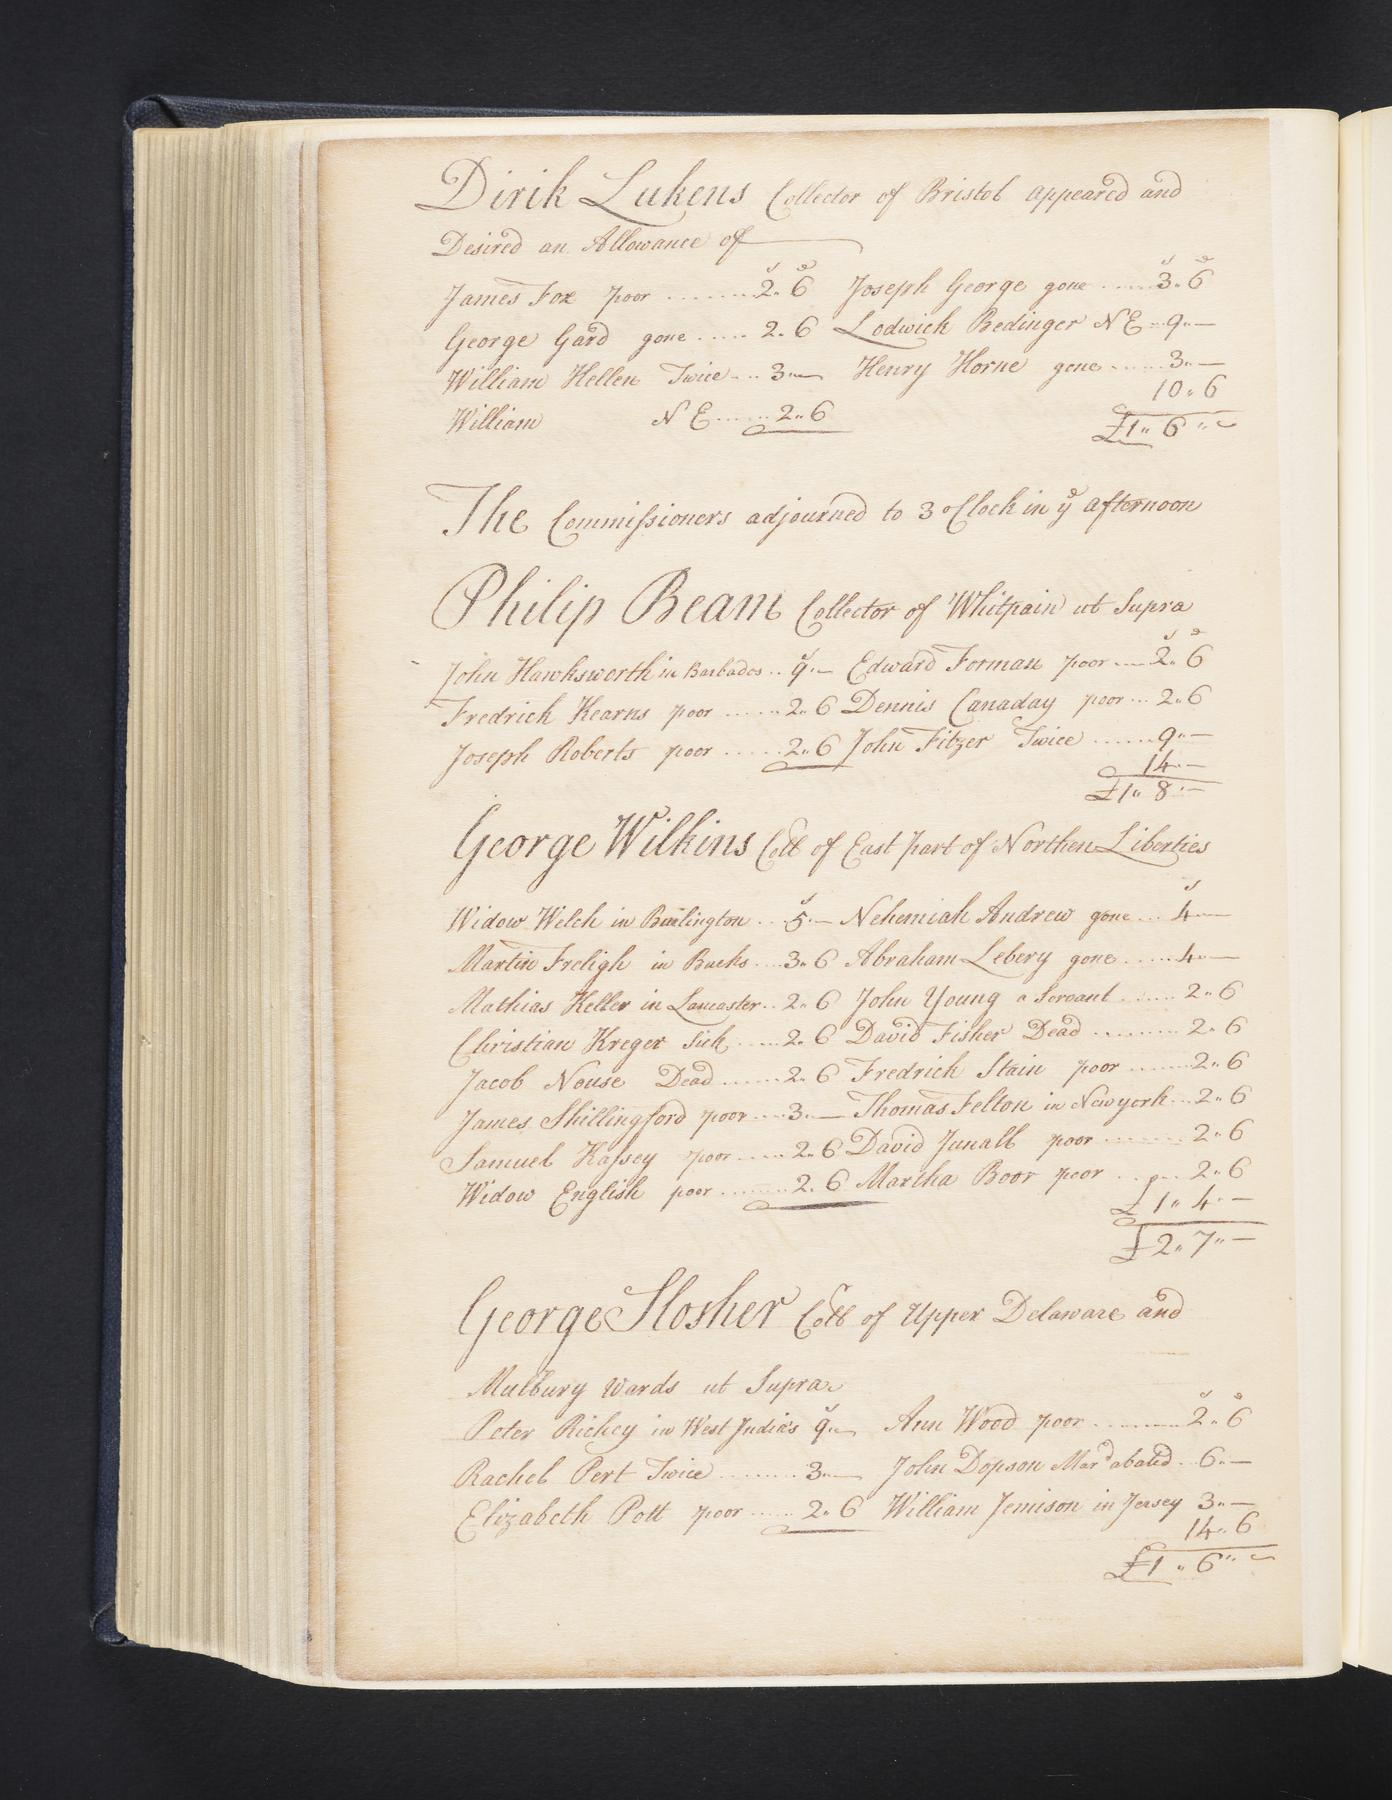 Dirik Lukens Collector of Bristol appeared and
Desired an Allowance of
s d s d
James Fox poor ........ 2 „ 6 Joseph George gone ...... 3 „ 6
George Gard gone ..... 2 „ 6 Lodwick Bedinger N E .. 9 „ —
William Hellen Twice .... 3 „ — Henry Horne gone ...... 3 „ —
10 „ 6
William N E ...... 2 „ 6 £1 „ 6 „ ~
The Commifsioners adjourned to 3 oClock in ye afternoon
Philip Beam Collector of Whitpain ut Supra
s s d
John Hawksworth in Barbados .. 9 „ — Edward Forman poor .... 2 „ 6
Fredrich Kearns poor ...... 2 „ 6 Dennis Canaday poor ... 2 „ 6
Joseph Roberts poor ...... 2 „ 6 John Fitzer Twice ...... 9 „ —
14 „ —
£1 „ 8 „ —
George Wilkins Coll of East part of Northen Liberties
s s
Widow Welch in Burlington ... 5 „ — Nehemiah Andrew gone ... 4 „ —
Martin Freligh in Bucks .... 3 „ 6 Abraham Lebery gone ...... 4 „ —
Mathias Keller in Lancaster .. 2 „ 6 John Young a Servant ...... 2 „ 6
Christian Kreger Sick ..... 2 „ 6 David Fisher Dead ......... 2 „ 6
Jacob Nouse Dead ...... 2 „ 6 Fredrich Stain poor ....... 2 „ 6
James Shillingford poor .... 3 „ — Thomas Felton in Newyork ... 2 „ 6
Samuel Kafsey poor ..... 2 „ 6 David Junall poor ....... 2 „ 6
Widow English poor ....... 2 „ 6 Martha Boor poor ...... 2 „ 6
£1 „ 4 „ —
£2 „ 7 „ —
George Slosher Coll of Upper Delaware and
Mulbury wards ut Supra
s s d
Peter Richey in West India's 9 „ — Ann Wood poor ......... 2 „ 6
Rachel Pert Twice ........ 3 „ — John Dopson Mard abated .. 6 „ —
Elizabeth Pott poor ..... 2 „ 6 William Jemison in Jersey 3 „ —
14 „ 6
£1 „ 6 „ ~